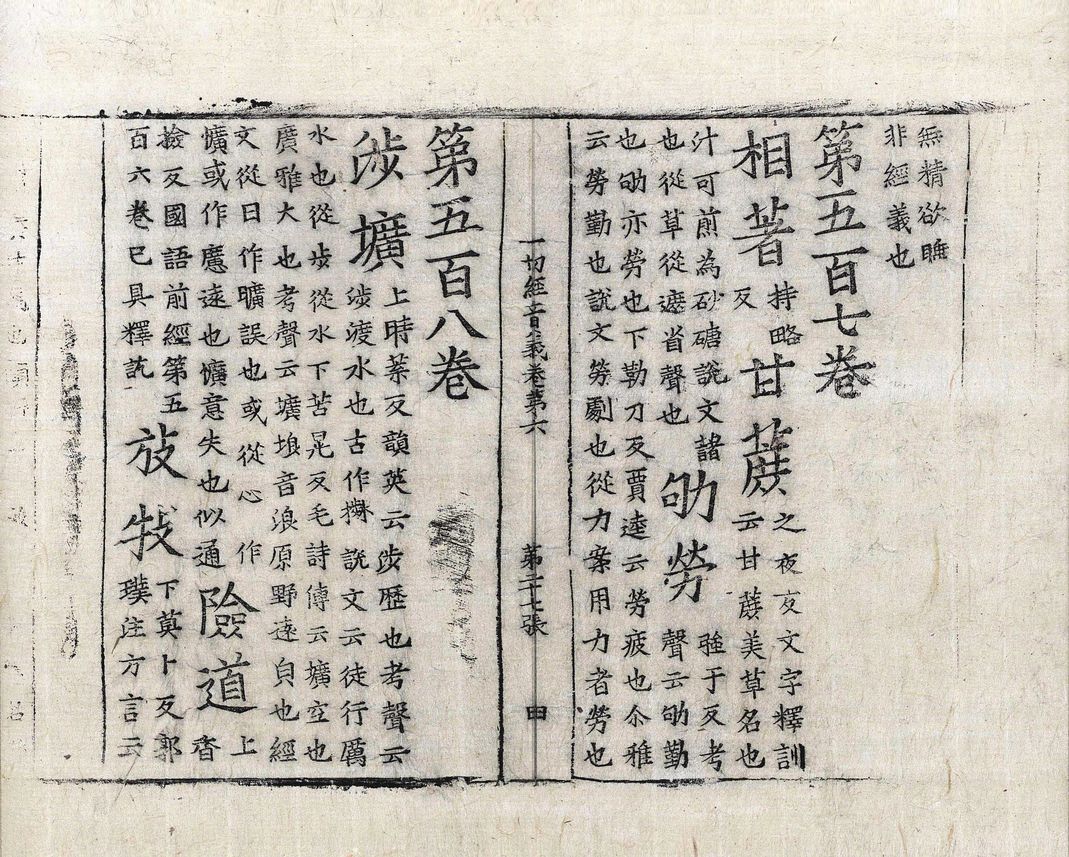 無精欲
非經義也
第五百七卷
相著 持略
反
甘蔗 之夜反文字釋訓
云甘蔗美草名也
汁可煎為砂磄說文諸
也從草從遮省聲也
劬勞 強于反考
聲云劬勤
也劬亦勞也下勒刀反賈逵云勞疲也尒雅
云勞勤也說文勞劇也從力案用力者勞也
一切經音義卷第六 第二十七張 田
第五百八卷
涉壙 上時葉反韻英云涉歷也考聲云
涉渡水也古作 說文云徒行厲
水也從步從水下苦晃反毛詩傳云壙空也
廣雅大也考聲云壙埌音浪原野遠皃也經
文從日作曠誤也或從心作
懭或作廣遠也懭意失也似通
險道 上
香
撿反國語前經第五
百六卷已具釋訖
放牧 下莫卜反郭
璞注方言云